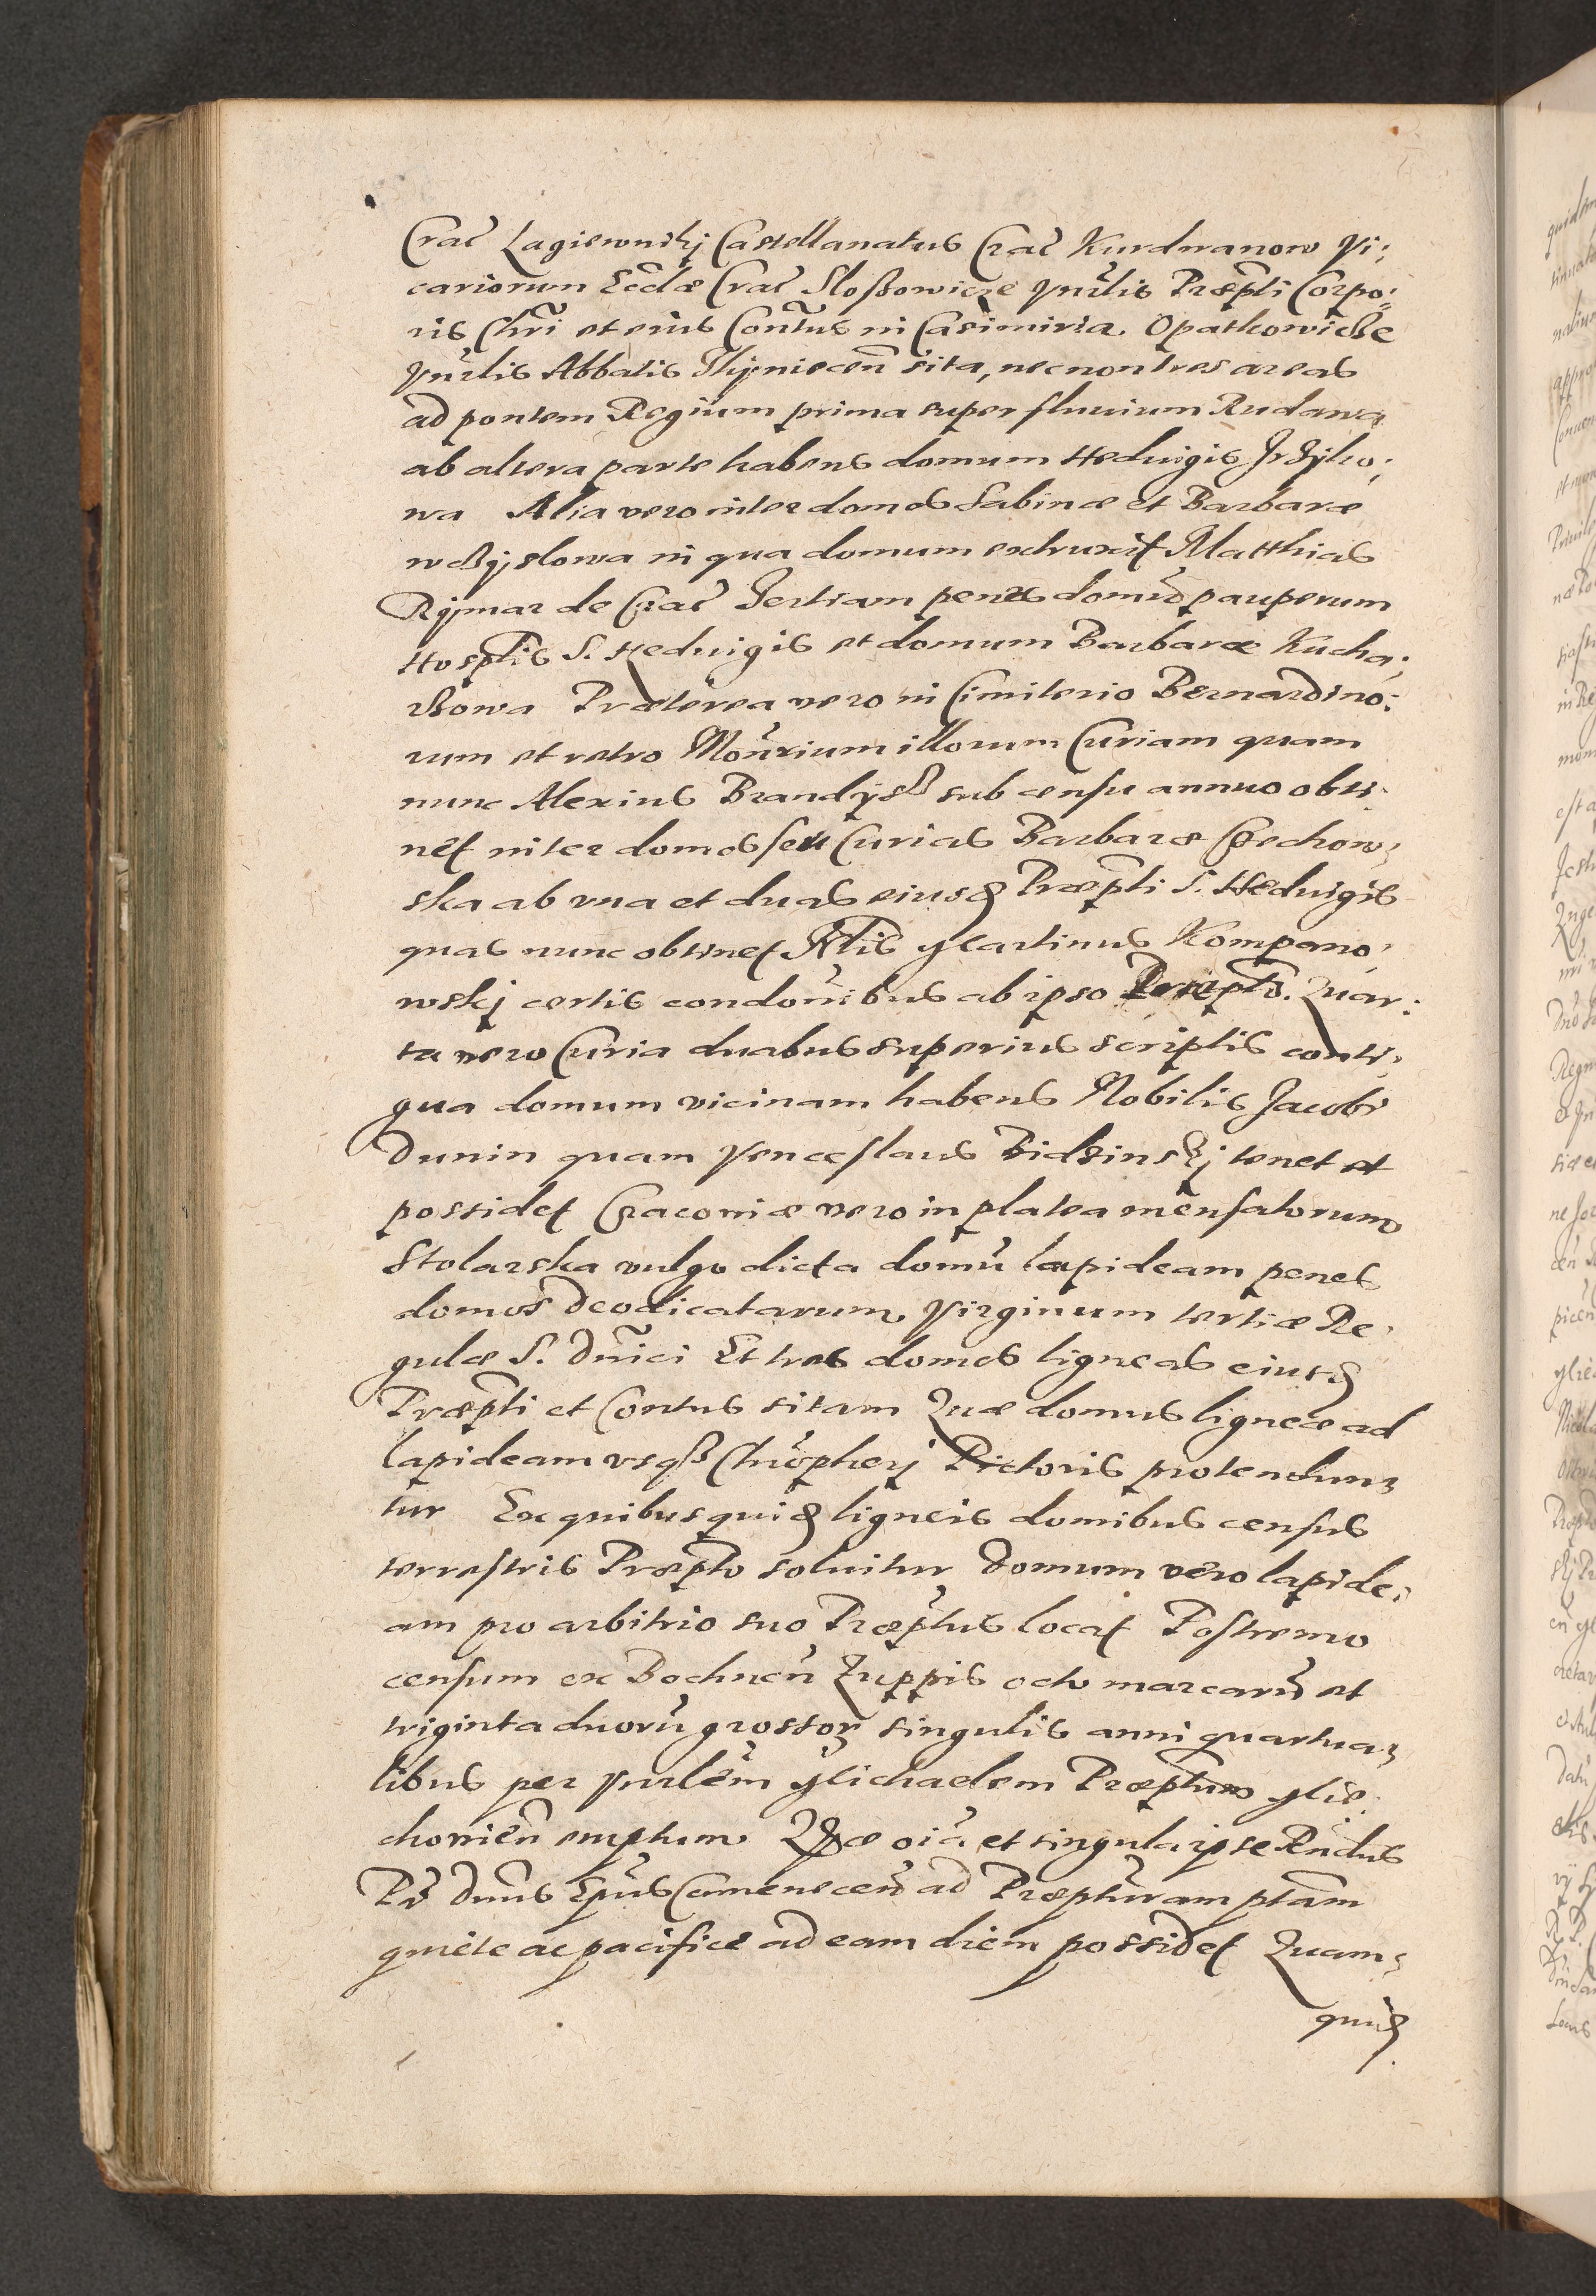 Crac̃ Lagiewnikj Castellanatus Crac̃ Kurdwanow Vi:
cariorum Eccl̃æ Crac̃ Sloßowicze Vnr̃lis Præpt̃i Corpo:
ris Chr̃i et eius Conũtus in Casimiria. Opatkowicze
Vnr̃lis Abbatis Thÿniecen̄ sita, necnon tres areas
ad pontem Regium prima super fluuium Rudawa
ab altera parte habens domum Heduigis
wa Alia vero inter domos Sabinæ et Barbaræ
in qua domum extruxit Matthias
Rÿmar de Crac̃ Tertiam penes domũ pauperum
Hospt̃lis S. Heduigis et domum Barbaræ Kucha:
rßowa Præterea vero in Cimiterio Bernardino:
rum et retro Monr̃ium illorum Curiam quam
nunc Alexius Brandÿsß sub censu annuo obti:
net inter domos seu Curias Barbaræ Czechow:
ska ab vna et duas eiusd Præpt̃i S. Heduigis
quas nunc obtinet Martinus Kompano:
wskj certis condonibus ab ipso Præpto. Quar:
ta vero Curia duabus superius scriptis conti:
gua domum vicinam habens Nobilis Jacobi
Dunin quam Venceslaus Bidzinskj tenet et
possidet Cracoviæ vero in platea mensatorum
Stolarska vulgo dicta domũ lapideam penes
domos deodicatarum Virginum tertiæ Re:
gulæ S. Dn̄ici Et tres domos ligneas eiusd
Præpt̃i et Contus sitam Quæ domus ligneæ ad
lapideam vsqß Chrõpherj Pictoris protendun:
tur Ex quibus quid ligneis domibus census
terrestris Præpto soluitur Domum vero lapide:
am pro arbitrio suo Præptus locat Postremo
censum ex Bochnen̄ Zuppis octo marcarũ et
triginta duorũ grossor singulis anni quartua:
libus per Vnrlẽm Michaelem Præptum Mie:
chovien̄ emptum Quæ oĩa et singula ipse Rñdus
Pr̃ Dnus Ep̃us Camenecen̄ ad Præpturam ptam
quiete ac pacifice ad eam diem possidet Quam:
quid